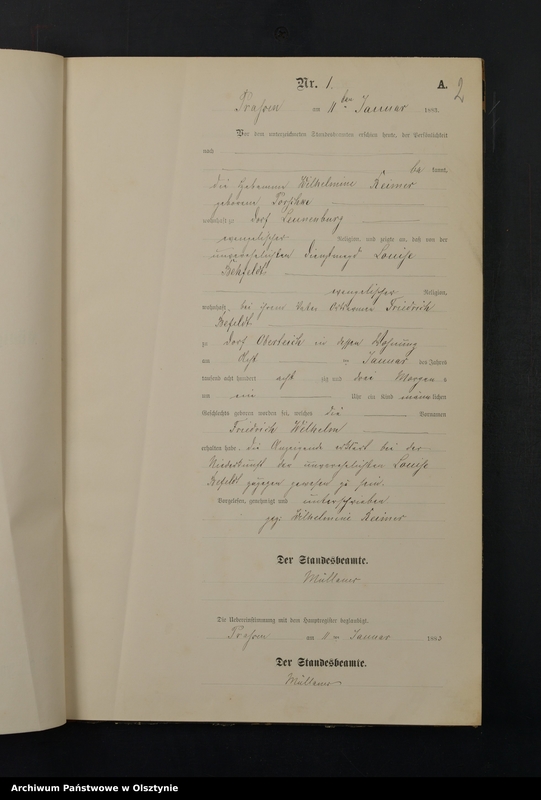 Nr. 1.
A. 2
am 11ten Januar 1883.
Vor dem unterzeichneten Standesbeamten erschien heute, der Persönlichkeit
nach
kannt,
die Hebamme Wilhelmine Reimer
geborene
wohnhaft zu Dorf Leunenburg
evangelischer Religion, und zeigte an, daß von der
unverehelichten Dienstmagd Louise
evangelischer Religion,
wohnhaft bei ihrem Vater Friedrich
Befeldt
zu Dorf in dessen Wohnung
am Acht ten Januar des Jahres
tausend acht hundert acht zig und drei Morgens
um ein Uhr ein Kind männlichen
Geschlechts geboren worden sei, welches die Vornamen
Friedrich Wilhelm
erhalten habe, die Anzeigende erklärt bei der
Niederkunft der unverehelichten Louise
Befeldt zugegen gewesen zu sein.
Vorgelesen, genehmigt und unterschrieben
gez. Wilhelmine Reimer
Der Standesbeamte.
Die Uebereinstimmung mit dem Hauptregister beglaubigt.
am 11ten Januar 1883
Der Standesbeamte.
Archiwum Państwowe w Olsztynie